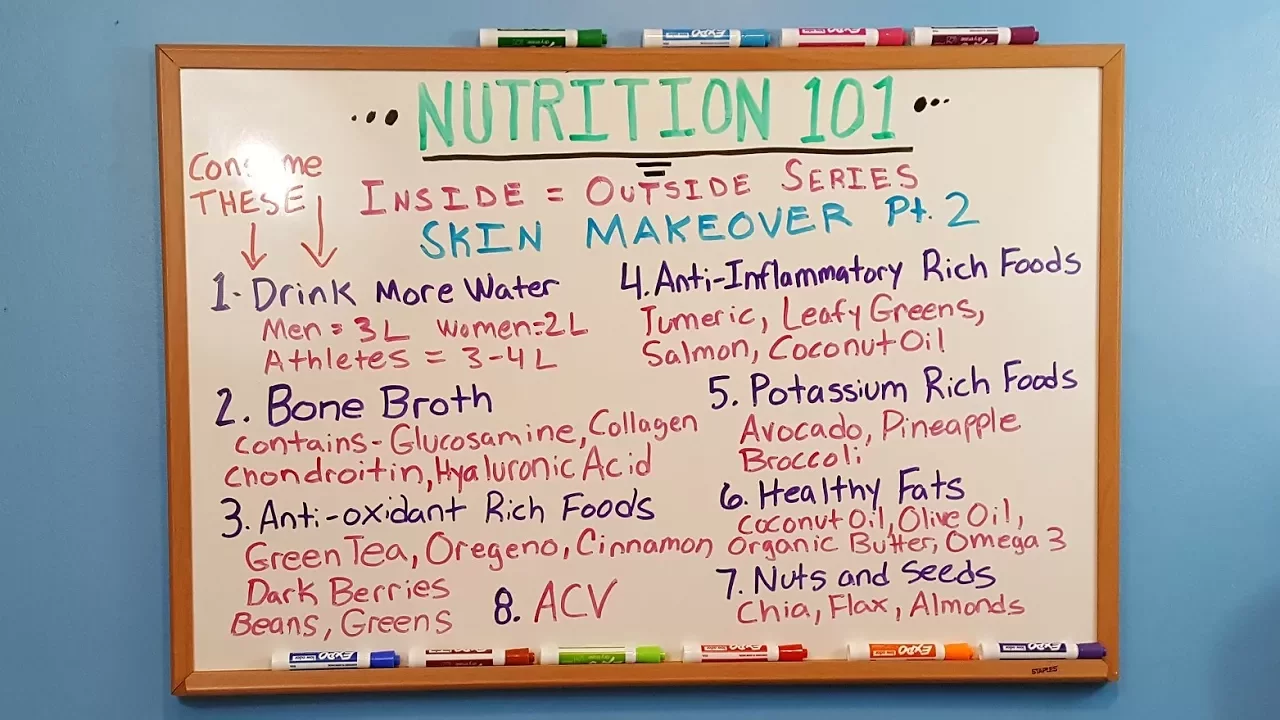 NUTRITION 101
Consume
THESE
INSIDE = OUTSIDE SERIES
SKIN MAKEOVER Pt. 2
1. Drink More Water
Men = 3L Women=2L
Athletes = 3-4L
2. Bone Broth
contains - Glucosamine, Collagen
Chondroitin, Hyaluronic Acid
3. Anti-oxidant Rich Foods
Green Tea, Oregeno, Cinnamon
Dark Berries
Beans, Greens
4. Anti-Inflammatory Rich Foods
Tumeric, Leafy Greens,
Salmon, Coconut Oil
5. Potassium Rich Foods
Avocado, Pineapple
Broccoli
6. Healthy Fats
Coconut Oil, Olive Oil,
Organic Butter, Omega 3
7. Nuts and Seeds
Chia, Flax, Almonds
8. ACV
EXPO
EXPO
EXPO
EXPO
EXPO
EXPO
STAPLES